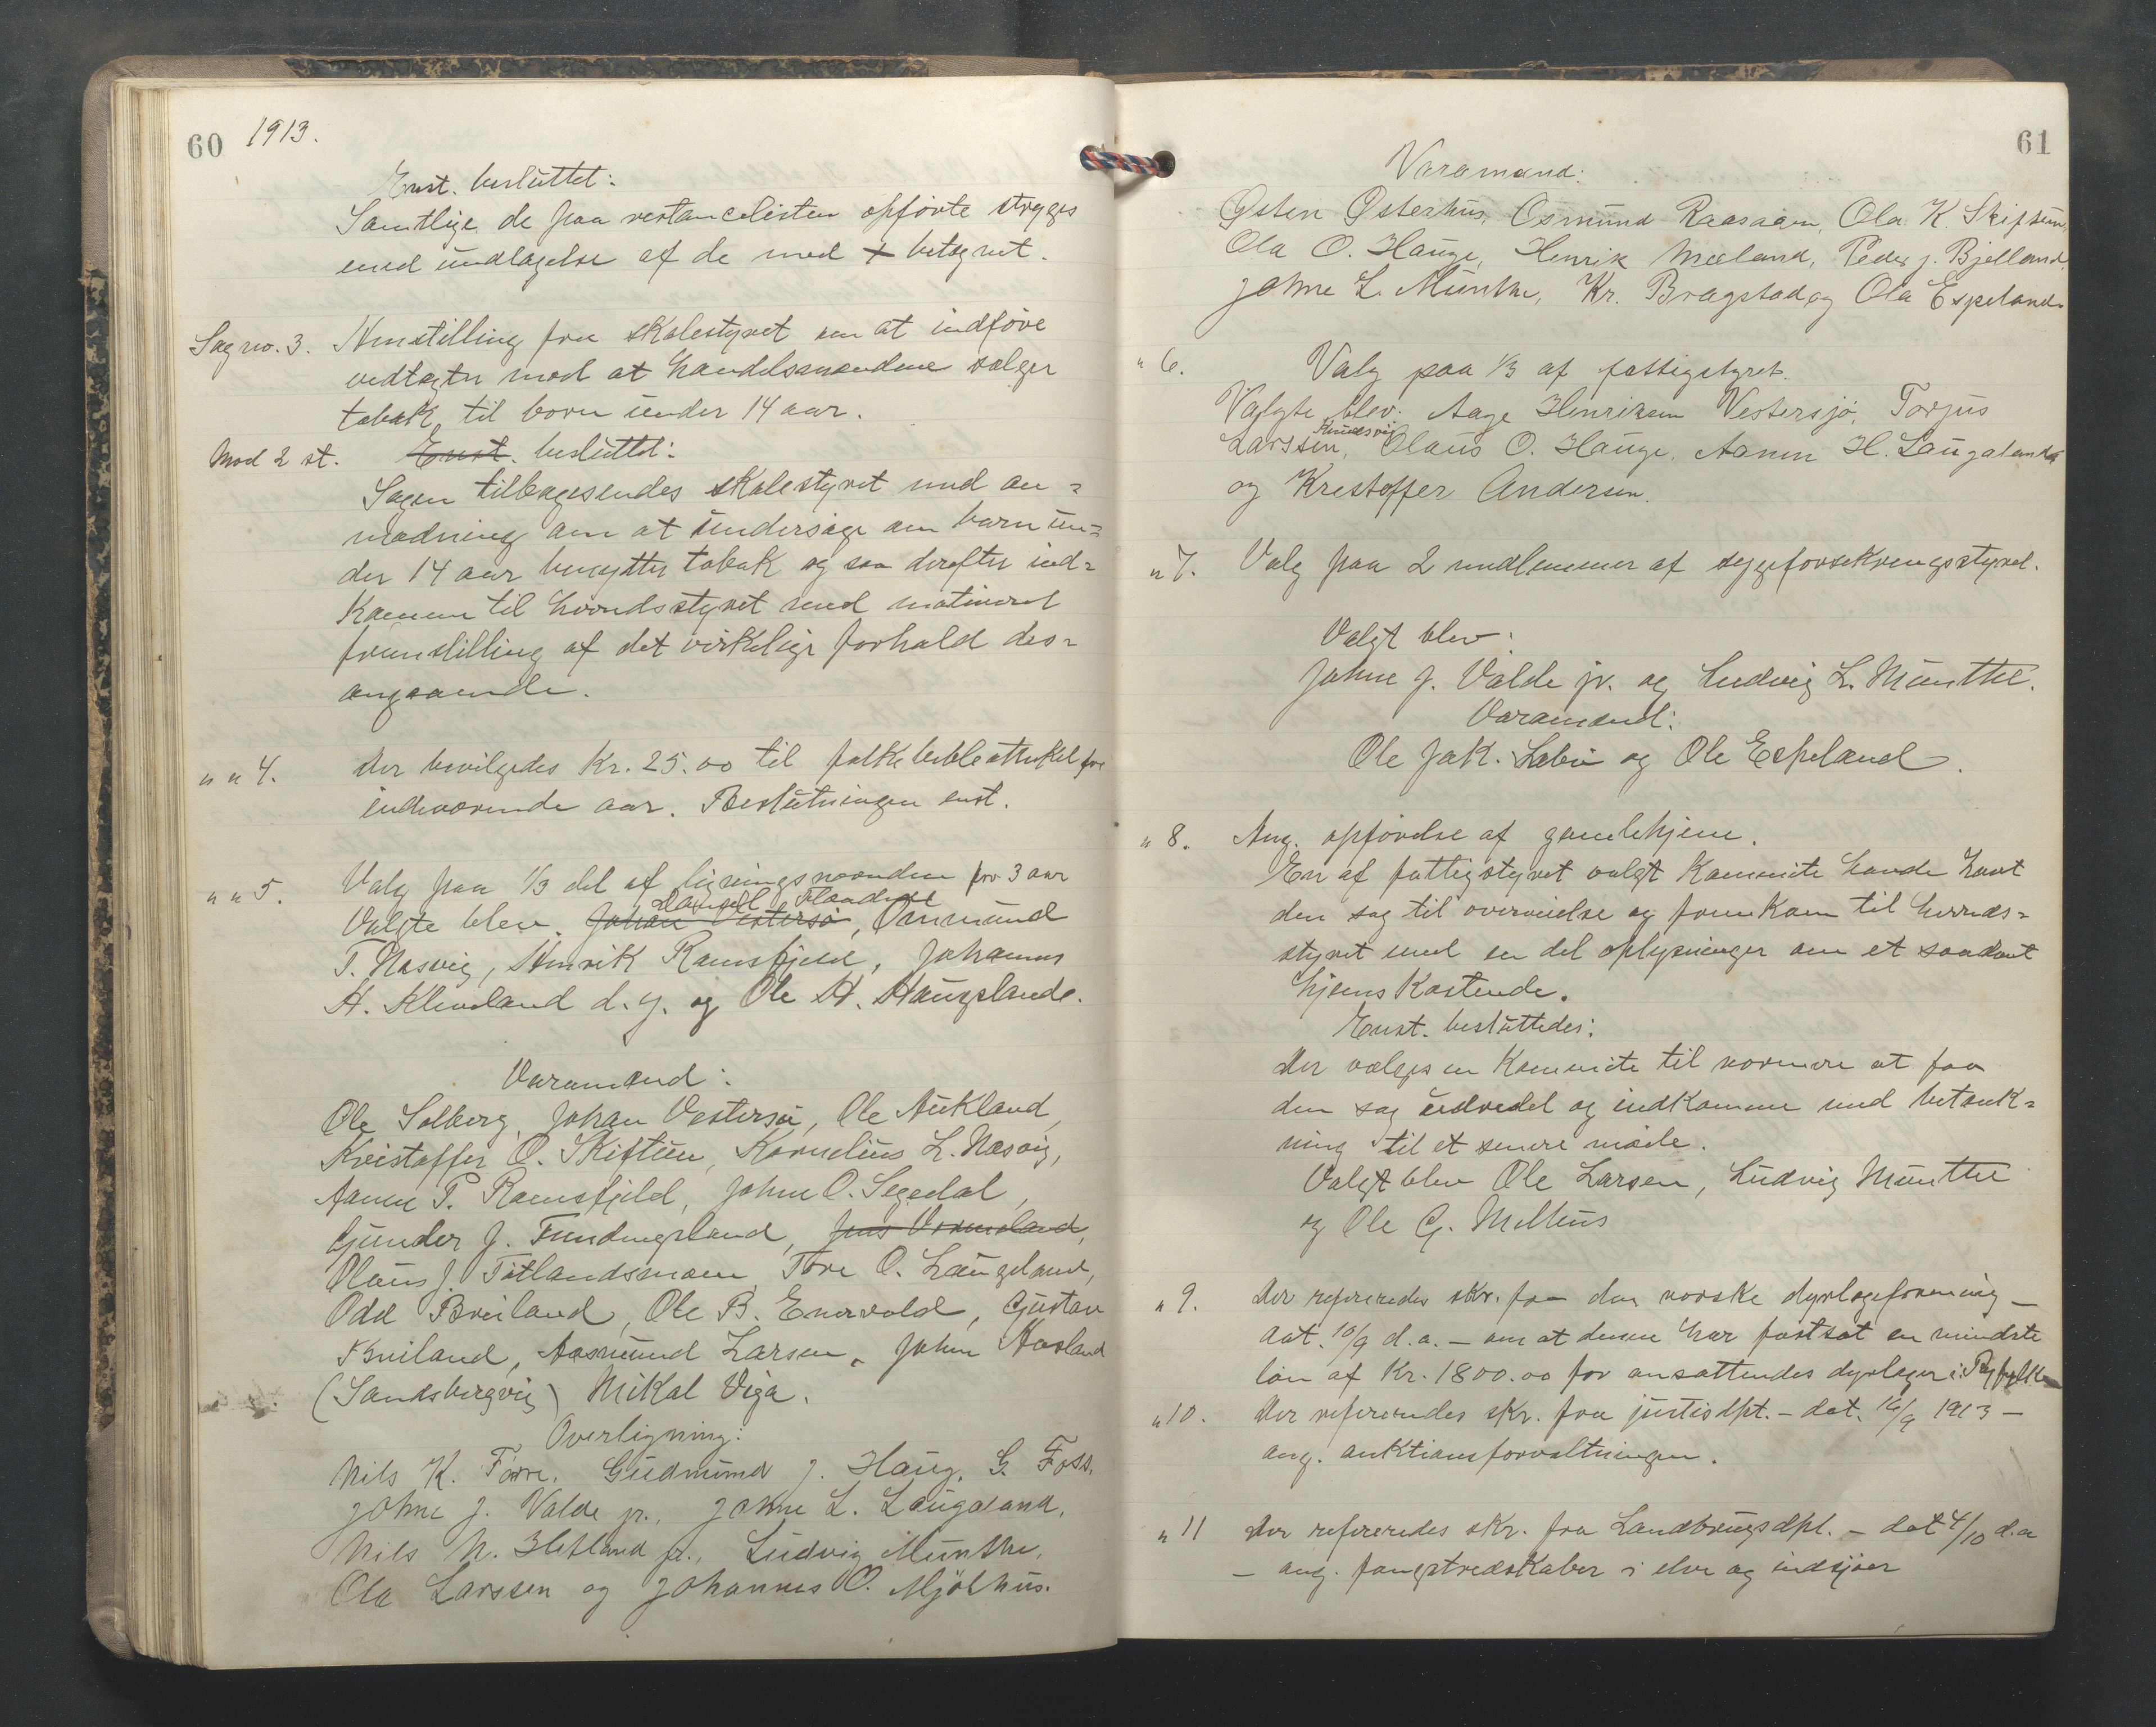 60 1913.
Enst. besluttet:
Samtlige de paa restancelisten opførte stryges
med undtagelse af de med + betegnet.
Sag no. 3. Henstilling fra skolestyret om at indføre
vedtegter mod at handelsmændene sælger
tobak til børn under 14 aar.
Mod 2 st. Enst. besluttet:
Sagen tilbagesendes skolestyret med an=
modning om at undersøge om barn un=
der 14 aar benytter tobak og saa derefter ind=
komme til herredsstyret med motiveret
fremstilling af det virkelige forhold des=
angaaende.
" " 4. Der bevilgedes Kr. 25.00 til folkebibliotheket for
indeværende aar. Beslutningen enst.
" " 5. Valg paa 1/3 del af ligningsnævnden for 3 aar
Valgte blev. Johan Vestersø, Omund
T. Næsvig, Henrik Ramsfjeld, Johannes
H. Kleveland d.y. og Ole H. Haugelande.
Varamænd:
Ole Solberg, Johan Vestersø, Ole Aukland,
Kristoffer O. Skiftun, Kornelius L. Næsvig,
Aanen P. Ramsfjeld, Johne O. Segedal,
Gunder J. Fundingsland, Jens
Olaus J. Tøtlandsmoen, Tore O. Laugeland,
Odd Breiland, Ole B. Enervold, Gustav
Breiland, Aasmund Larsen, John Hosland
(Sandsbergvig) Mikal Viga.
Overligning:
Nils K. Førre, Gudmund J. Haug, G. Foss,
Johne J. Valde jr., Johne L. Laugaland,
Nils N. Hetland jr., Ludvig Munthe,
Ola Larssen og Johannes O. Mjølhus.
61
Varamænd:
Østen Østerhus, Osmund Raasaaen, Ola K. Skiftun,
Ola O. Hauge, Henrik Mæland, Peder J. Bjelland,
Johne L. Munthe, Kr. Bragstad og Ola Espeland.
" 6. Valg paa 1/3 af fattigstyret.
Valgte blev: Aage Henriksen Vestersjø, Torjus
Knudsvig
Larssen, Olaus O. Hauge, Aanen H. Laugaland
og Krestoffer Andersen.
" 7. Valg paa 2 medlemmer af sygeforsekringsstyret.
Valgt blev:
Johne J. Valde jr. og Ludvig L. Munthe.
Varamænd:
Ole Jak. Løbø og Ole Espeland.
" 8. Ang. opførelse af gamlehjem.
En af fattigstyret valgt Kommite havde havt
den sag til overveielse og fremkom til herreds=
styret med en del oplysninger om et saadant
hjems kostende.
Enst. besluttedes:
Der vælges en Kommite til nærmere at faa
den sag udredet og indkomme med betænk=
ning til et senere møde.
Valgt blev Ole Larsen, Ludvig Munthe
og Ole G. Melhus
" 9. Der refereredes skr. fra den norske dyrlægeforening –
dat. 10/9 d.a. – om at denne har fastsat en mindste
løn af Kr. 1800.00 for ansættendes dyrlæger i Ryfylke
" 10. Der refereredes skr. fra justisdpt. – dat. 16/9 1913 –
ang. auktionsforvaltningen.
" 11 Der refereredes skr. fra Landbrugsdpt. – dat 4/10 d.a
– ang. fangstredskaber i elve og indsjøer